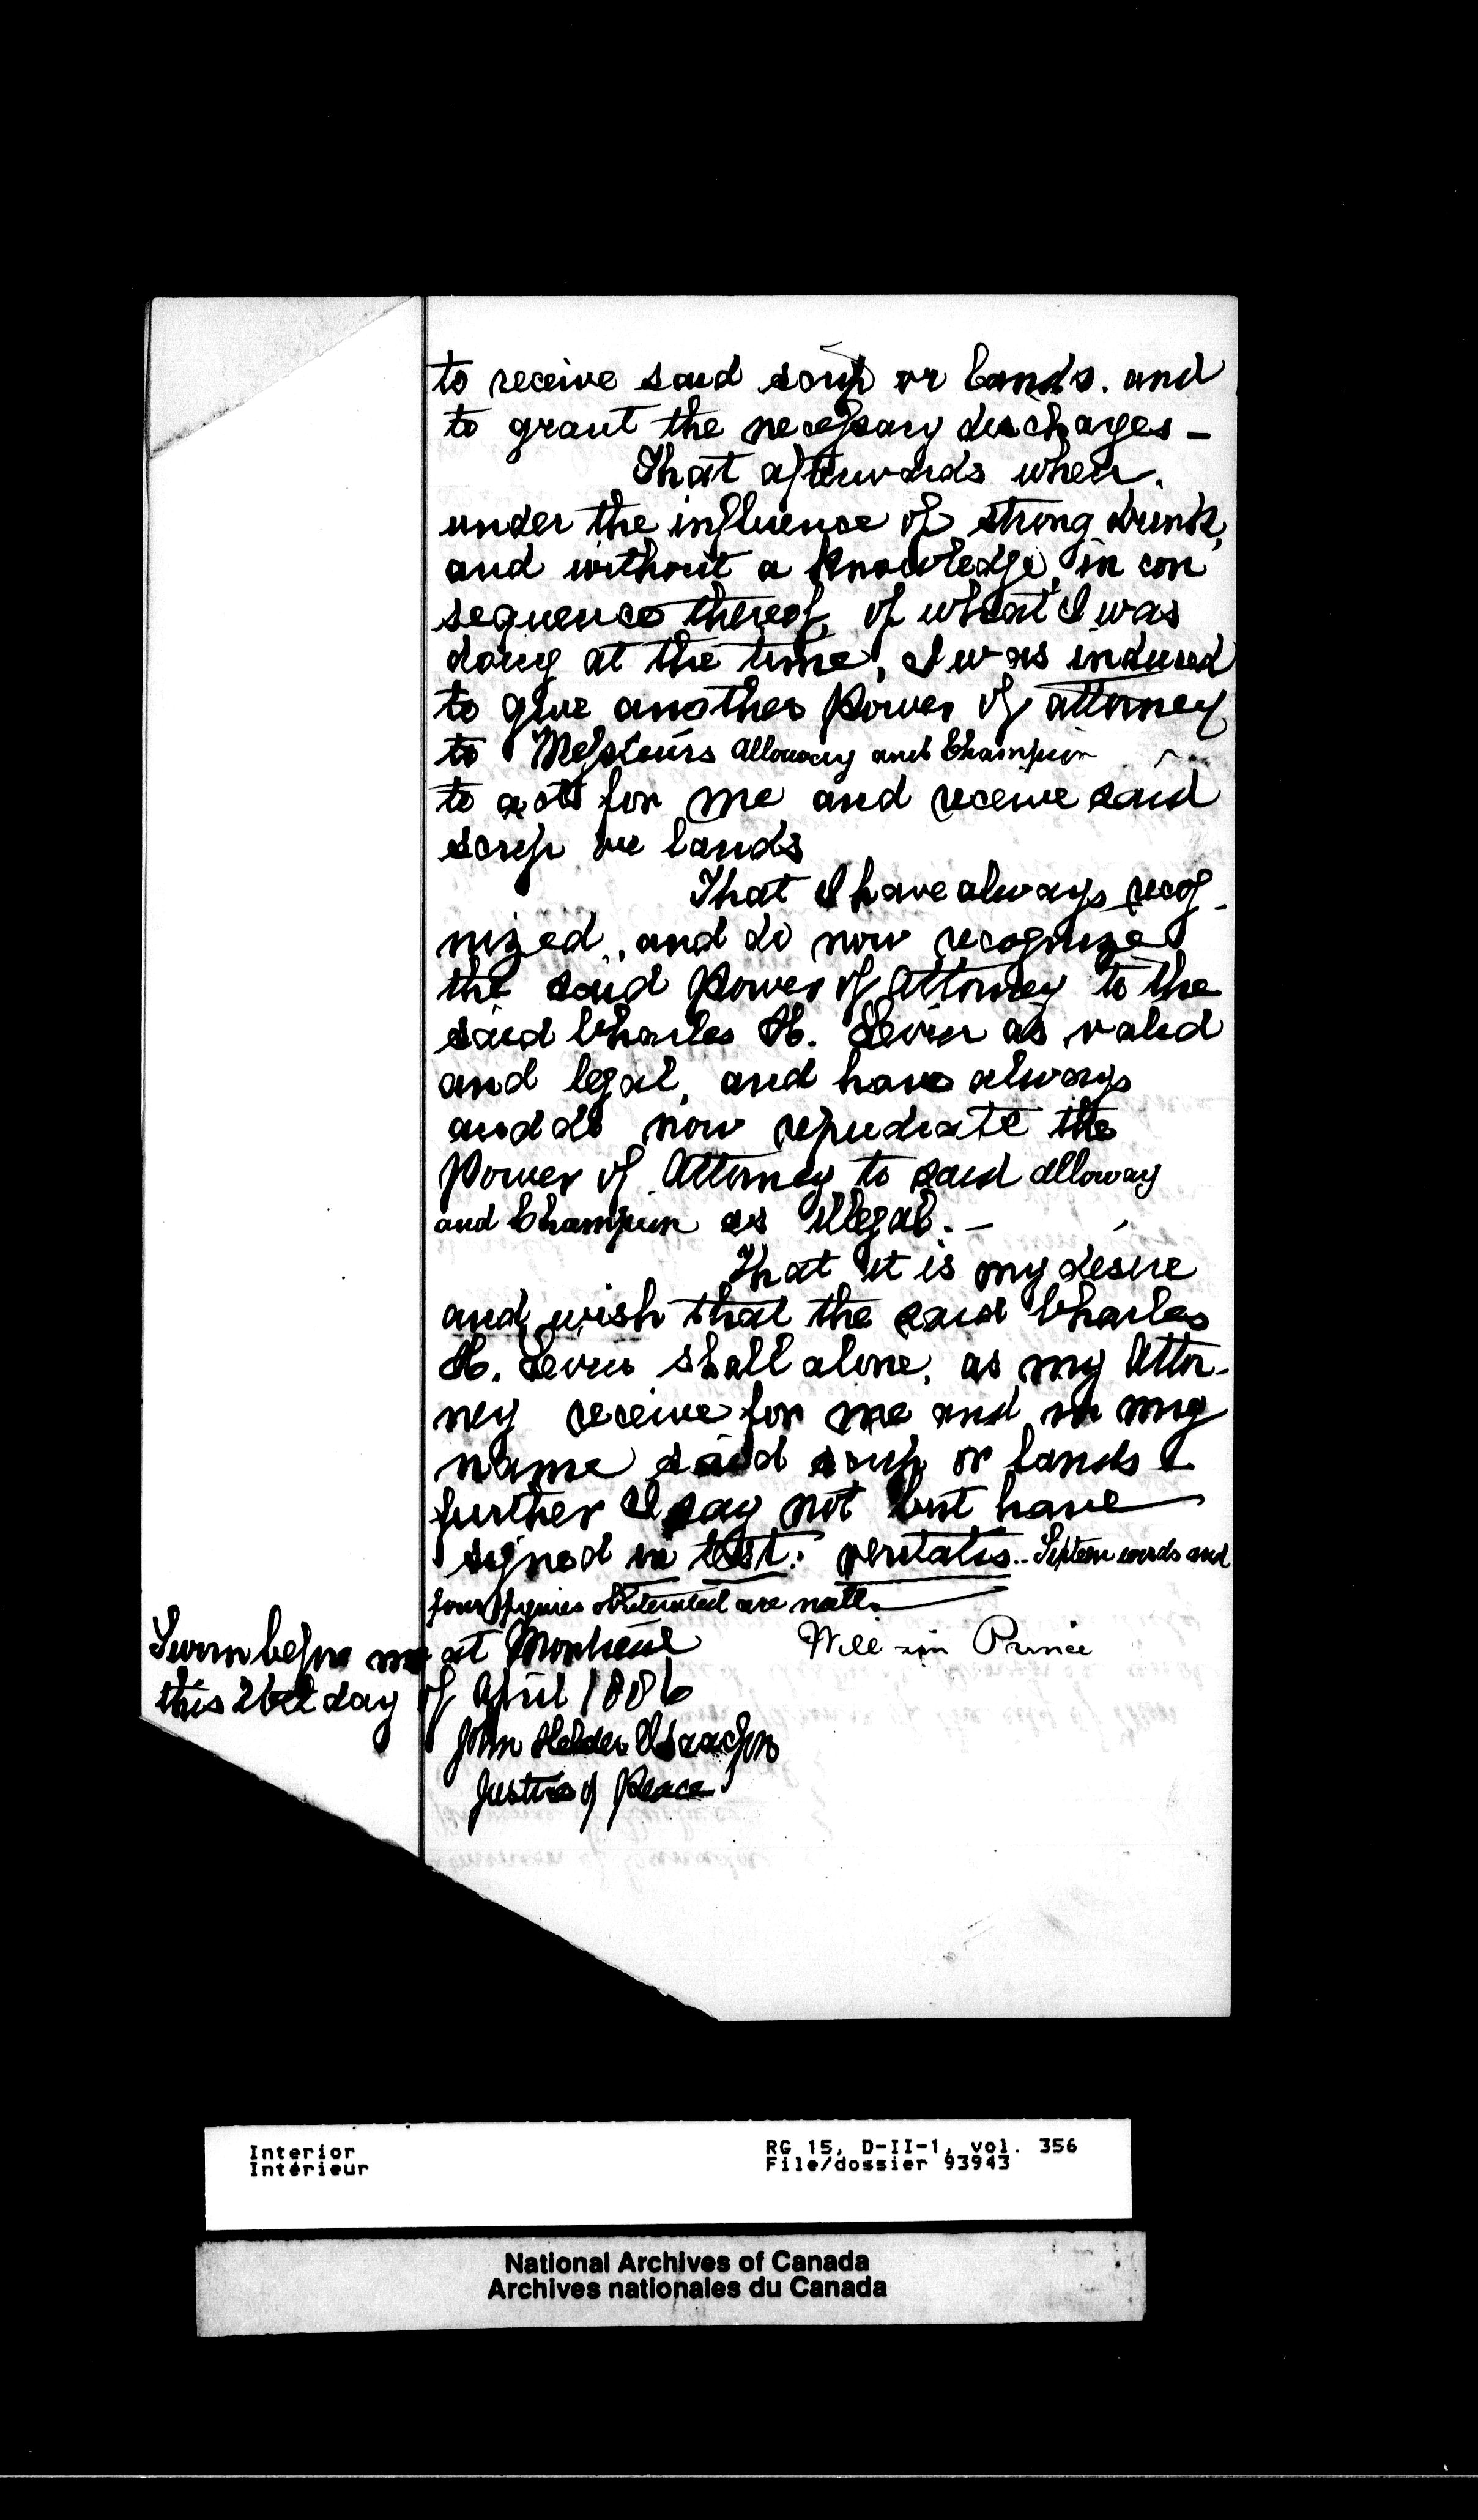 to receive said scrip or lands. and
to grant the necessary discharges —
That afterwards when.
under the influence of strong drink,
and without a knowledge, in con
sequence thereof, of what I was
doing at the time, I was induced
to give another Power of attorney
to Messieurs Alloway and Champion
to act for me and receive said
scrip or lands
That I have always recog-
nized, and do now recognize
the said Power of Attorney to the
said Charles H. as valid
and legal, and have always
and do now repudiate the
Power of Attorney to said Alloway
and Champion as illegal. —
That it is my desire
and wish that the said Charles
H. shall alone, as my Attor-
ney receive for me and in my
name said scrip or lands &
further I say not but have
signed in test: veritatis.. words and
four figures obliterated are null.
Sworn before me at Montreal
William Prince
this day of April 1886
John Isaacson
Justice of Peace
Interior
Intérieur
RG 15, D-II-1, vol. 356
File/dossier 93943
National Archives of Canada
Archives nationales du Canada